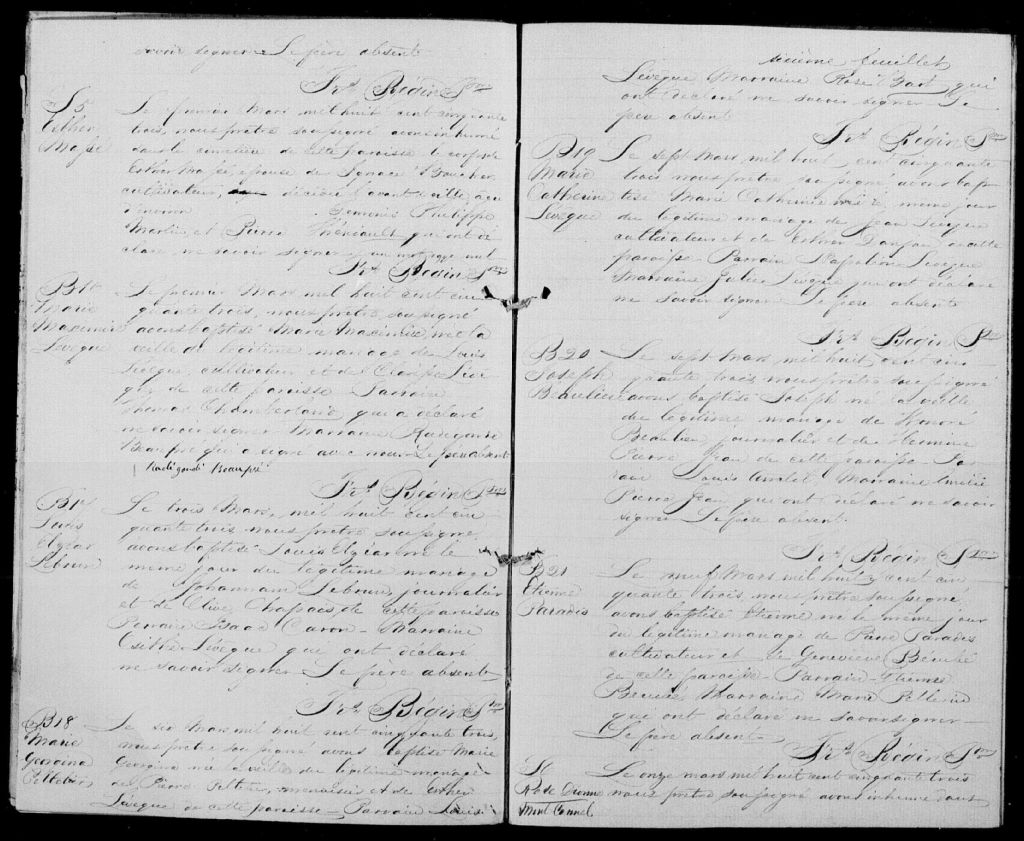 savoir signer. Le père absent
Frs Bégin Ptre
S5
Esther
Massé
Le premier Mars mil huit cent cinquante
trois, nous prêtre soussigné avons inhumé
dans le cimetière de cette paroisse le corps de
Esther Massé, épouse de Ignace Boucher
cultivateur, décédée l'avant veille, agée
d'environ Témoins Philippe
Martin et Pierre Thériault qui ont dé
claré ne savoir signer. un mot rayé nul
Frs Bégin Ptre
Marie
Maximée
Levêque
Le premier Mars mil huit cent cin
quante trois, nous prêtre, soussigné
avons baptisé Marie Maximée, née la
veille du légitime mariage de Louis
Levêque, cultivateur et de
de cette paroisse Parrain
Thomas Chamberland qui a déclaré
ne savoir signer. Marraine Radegonde
Beaupré qui a signé avec nous. Le père absent
Radégonde Beaupré
Frs Bégin Ptre
B17
Louis
Elzéar
Lebrun
Le trois Mars, mil huit cent cin
quante trois nous prêtre soussigné
avons baptisé Louis Elzéar né le
même jour du légitime mariage
de Johannam Lebrun journalier
et de Olive Chapais de cette paroisse
Parrain Isaac Caron - Marraine
Esther Levêque qui ont déclaré
ne savoir signer Le père absent
Frs Bégin Ptre
B18
Marie
Georgina
Pelletier
Le six Mars mil huit cent cinquante trois,
nous prêtre soussigné avons baptisé Marie
Georgina née la veille du légitime mariage
de Pierre Pelletier, menuisier et de Esther
Levêque de cette paroisse - Parrain Louis
sixième feuillet
Levêque Marraine Rose qui
ont déclaré ne savoir signer Le
père absent
Frs Bégin Ptre
B19
Marie
Catherine
Levêque
Le sept Mars, mil huit cent cinquante
trois nous prêtre soussigné avons bap
tisé Marie Catherine née le même jour
du légitime mariage de Jean Levêque
cultivateur et de Esther Danjou de cette
paroisse. Parrain Napoléon Levêque
Marraine Julie Levêque qui ont déclaré
ne savoir signer Le père absent
Frs Bégin Ptre
B20
Joseph
Beaulieu
Le sept Mars mil huit cent cin
quante trois, nous prêtre soussigné
avons baptisé Joseph né la veille
du légitime mariage de Honoré
Beaulieu journalier et de Hermine
Pierre Jean de cette paroisse. Par
rain Louis Marraine Emélie
Pierre Jean qui ont déclaré ne savoir
signer Le père absent.
Frs Bégin Ptre
B21
Etienne
Paradis
Le neuf Mars mil huit cent cin
quante trois, nous prêtre soussigné
avons baptisé Etienne né le même jour
du légitime mariage de Pierre Paradis
cultivateur et de Geneviève Bérubé
de cette paroisse - Parrain Etienne
Bérubé, Marraine Marie Pelletier
qui ont déclaré ne savoir signer
Le père absent
Frs Bégin Ptre
Rose Dionne
Mont Carmel
Le onze mars mil huit cent cinquante trois
nous prêtre soussigné avons inhumé dans